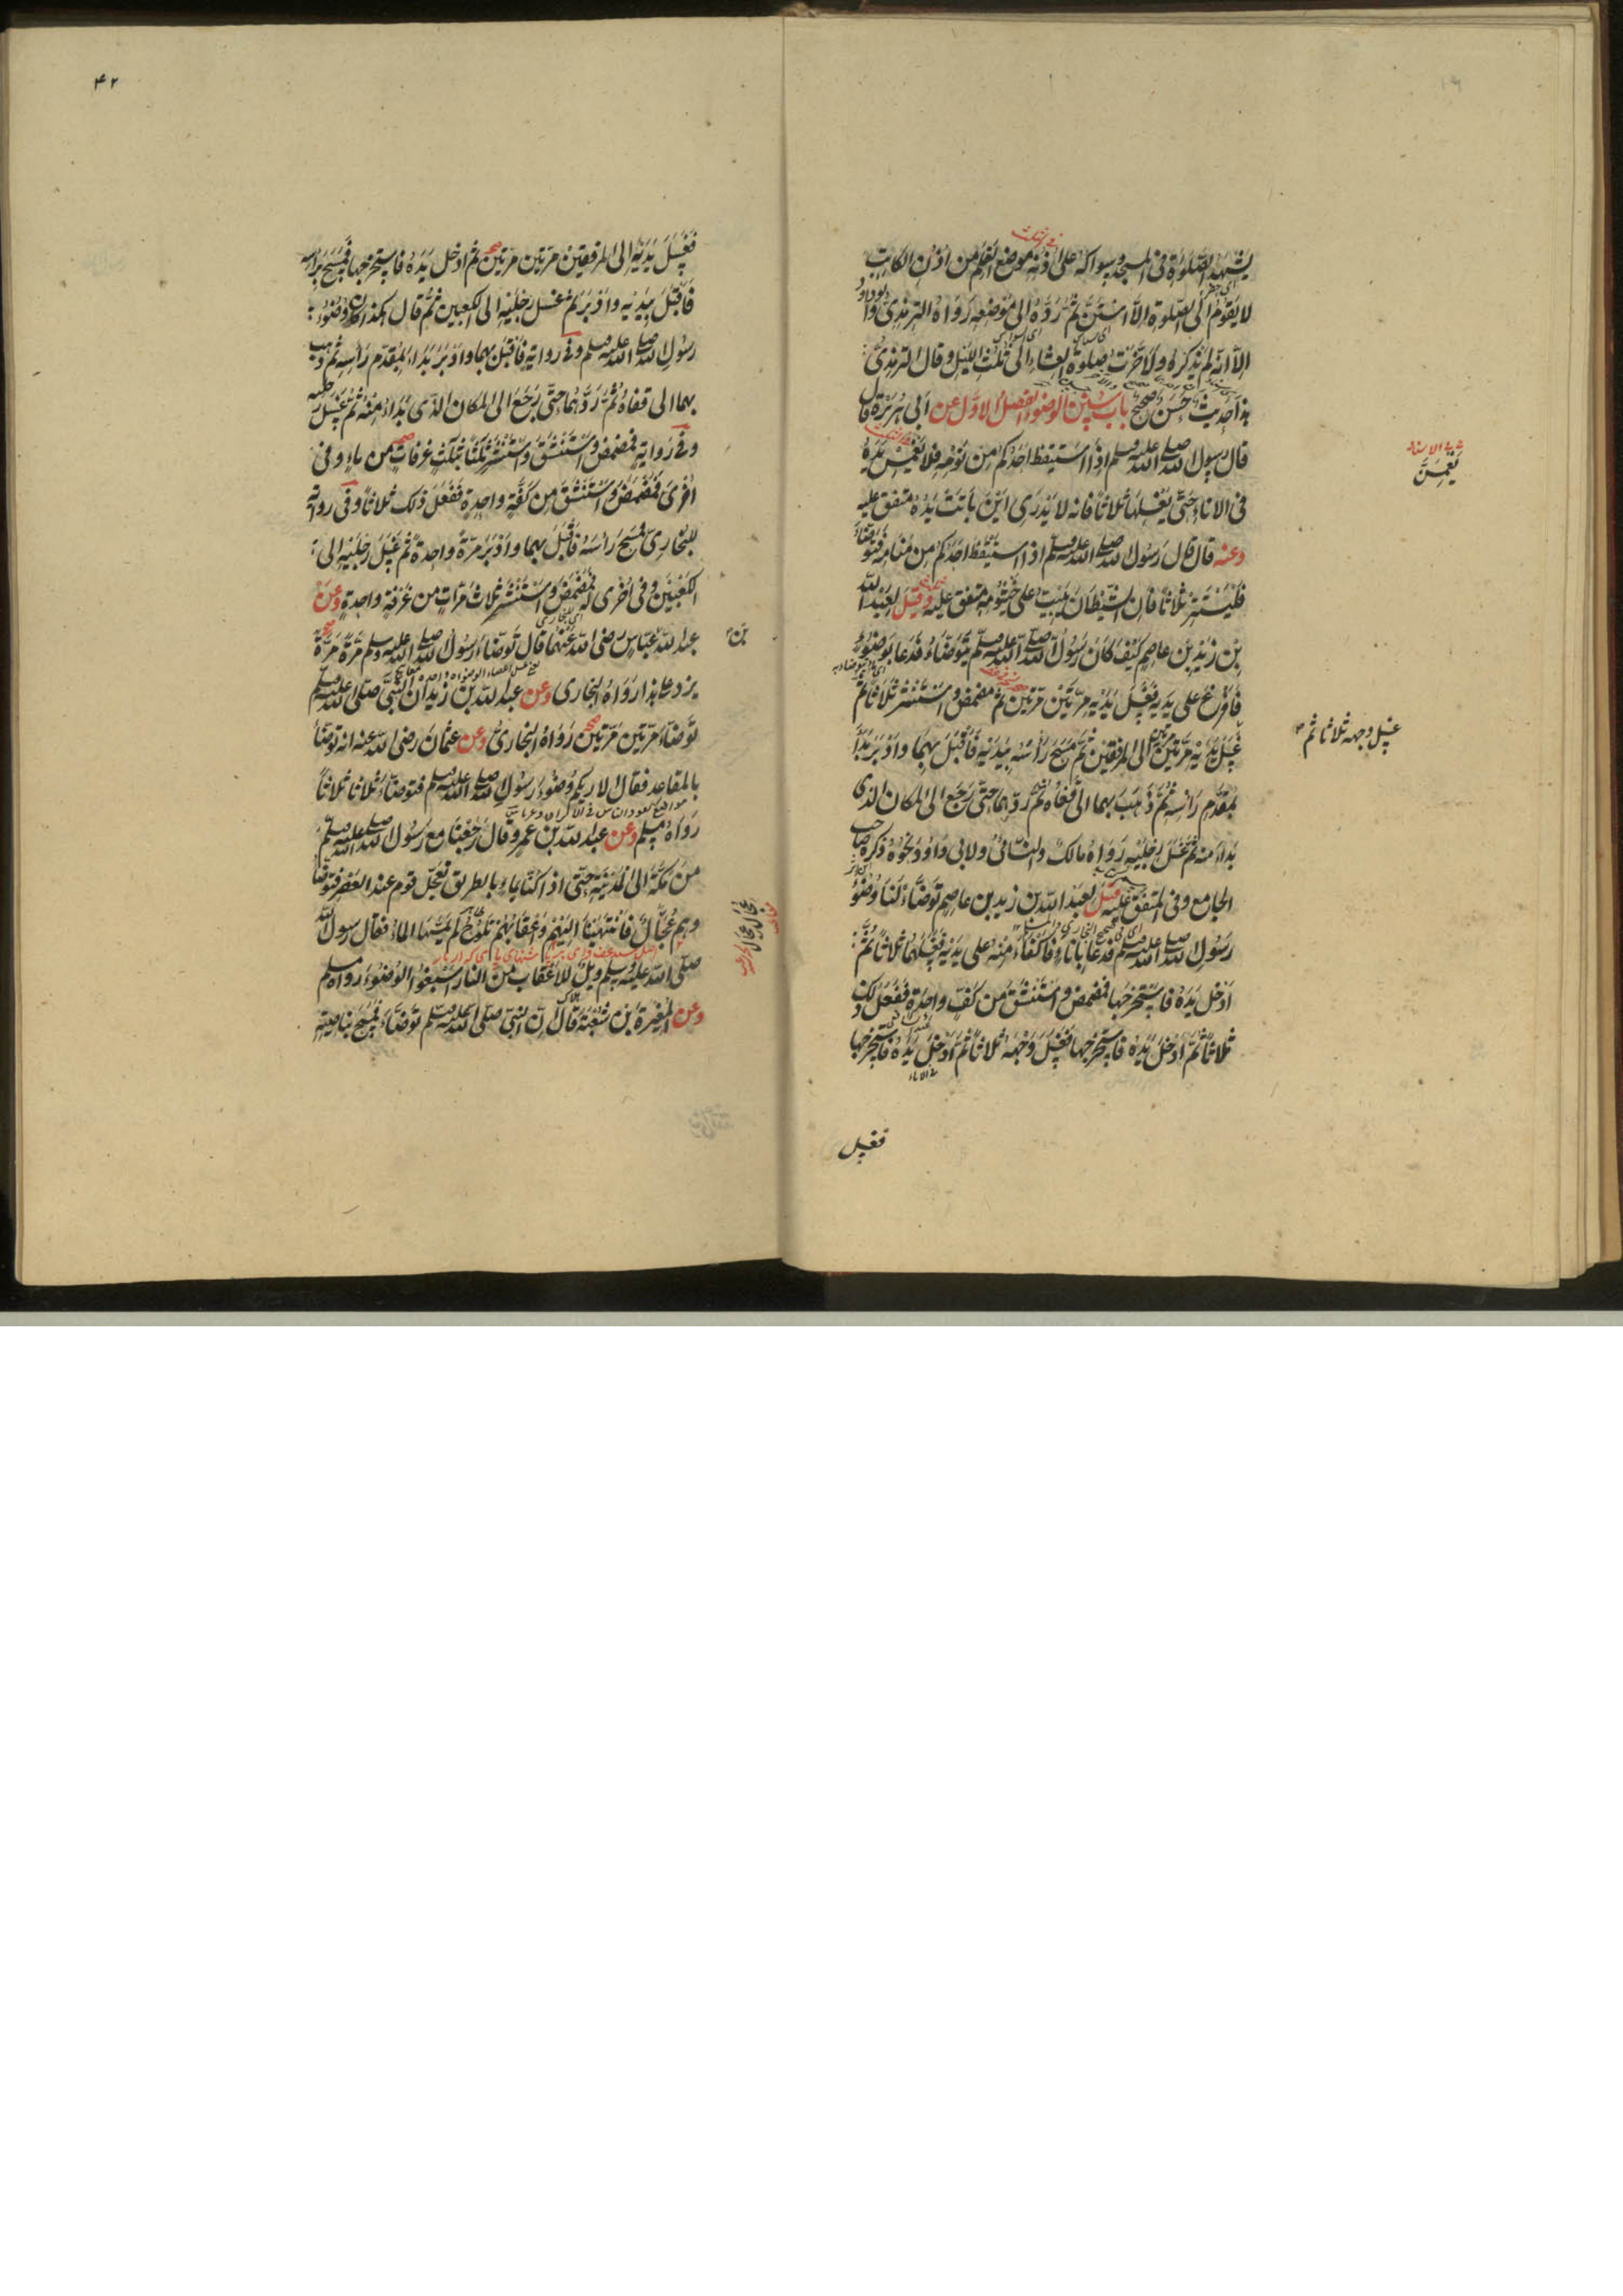 يشهد الصلوة فى المسجد وسواكه على اذنه موضع القلم من اذن الكاتب
لا يقوم الى الصلوة الا استن ثم رده الى موضعه رواه الترمذى وابوداود
الا انه لم يذكر ولاخرت صلوة العشاء الى ثلث الليل وقال الترمذى
هذا حديث حسن صحيح باب سنن الوضوء الفصل الاول عن ابى هريرة قال
قال رسول الله صلى الله عليه وسلم اذا استيقظ احدكم من نومه فلا يغمس يده
فى الاناء حتى يغسلها ثلاثا فانه لا يدرى اين باتت يده متفق عليه
وعنه قال قال رسول الله صلى الله عليه وسلم اذا استيقظ احدكم من منامه فتوضأ
فليستنثر ثلاثا فان الشيطان يبيت على خيشومه متفق عليه وقيل لعبد الله
بن زيد بن عاصم كيف كان رسول الله صلى الله عليه وسلم يتوضاء فدعا بوضوء
فافرغ على يديه فغسل يديه مرتين مرتين ثم مضمض واستنثر ثلاثا ثم
غسل يديه مرتين مرتين الى المرفقين ثم مسح رأسه بيديه فاقبل بهما وادبر بدأ
بمقدم رأسه ثم ذهب بهما الى قفاه ثم ردهما حتى رجع الى المكان الذى
بداء منه ثم غسل رجليه رواه مالك والنسائى ولابى داود نحوه ذكره صاحب
الجامع وفى المتفق عليه قيل لعبد الله بن زيد بن عاصم توضاء لنا وضوء
رسول الله صلى الله عليه وسلم فدعا باناء فاكفاء منه على يديه فغسلهما ثلاثا ثم
ادخل يده فاستخرجها فمضمض واستنشق من كف واحدة ففعل ذلك
ثلاثا ثم ادخل يده فاستخرجها فغسل وجهه ثلاثا ثم ادخل يده فاستخرجها
فغسل
يغمسن
غسل وجهه ثلاثا ثم
۴۲
فغسل يديه الى المرفقين مرتين مرتين ثم ادخل يده فاستخرجها فمسح براسه
فاقبل بيديه وادبر ثم غسل رجليه الى الكعبين ثم قال هكذا كان وضوء
رسول الله صلى الله عليه وسلم وفى رواية فاقبل بهما وادبر بداء بمقدم راسه ثم ذهب
بهما الى قفاه ثم ردهما حتى رجع الى المكان الذى بداء منه ثم غسل رجليه
وفى رواية فمضمض واستنشق واستنثر ثلثا بثلث غرفات من ماء وفى
اخرى فمضمض واستنشق من كفة واحدة ففعل ذلك ثلاثا وفى رواية
للبخارى فمسح رأسه فاقبل بهما وادبر مرة واحدة ثم غسل رجليه الى
الكعبين وفى اخرى له فمضمض واستنثر ثلاث مرات من غرفة واحدة وعن
عبد الله عباس رضى الله عنهما قال توضاء رسول الله صلى الله عليه وسلم مرة مرة
يزد على هذا رواه البخارى وعن عبد الله بن زيد ان النبى صلى الله عليه وسلم
توضاء مرتين مرتين رواه البخارى وعن عثمان رضى الله عنه انه توضأ
بالمقاعد فقال الا اريكم وضوء رسول الله صلى الله عليه وسلم فتوضأ ثلاثا ثلاثا
رواه مسلم وعن عبد الله بن عمرو قال رجعنا مع رسول الله صلى الله عليه وسلم
من مكة الى المدينة حتى اذا كنا بماء بالطريق تعجل قوم عند العصر فتوضأ
وهم عجال فانتهينا اليهم واعقابهم تلوح لم يمسها الماء فقال رسول الله
صلى الله عليه وسلم ويل للاعقاب من النار اسبغوا الوضوء رواه مسلم
وعن المغيرة بن شعبة قال ان النبى صلى الله عليه وسلم توضاء فمسح بناصيته
بن